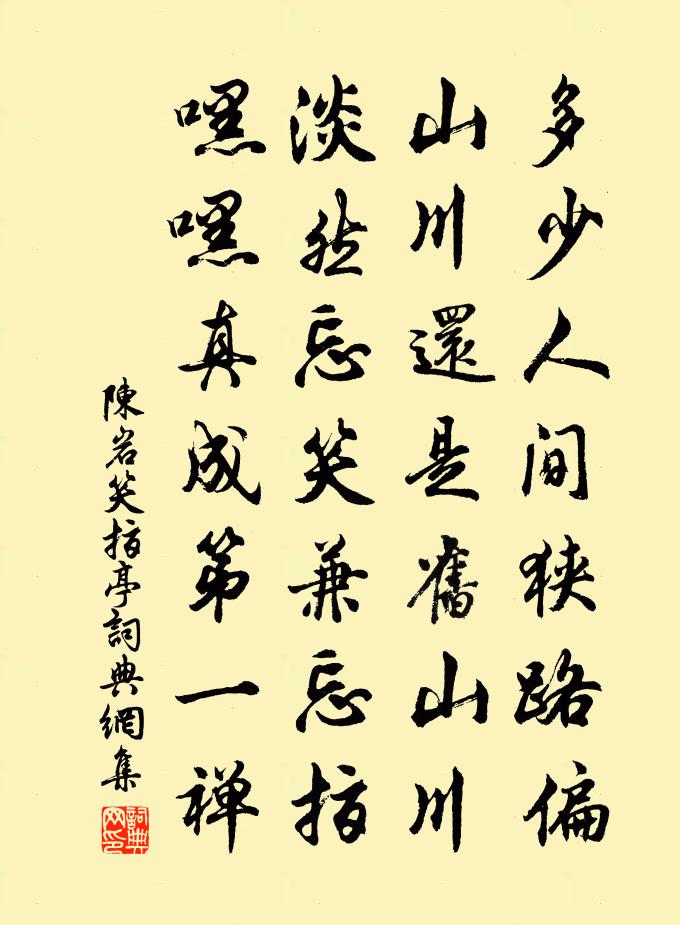 多少人间狭路偏
山川還是舊山川
淡然忘笑兼忘指
嘿嘿真成第一禅
陳岩笑指亭詞典網集
詞典网印